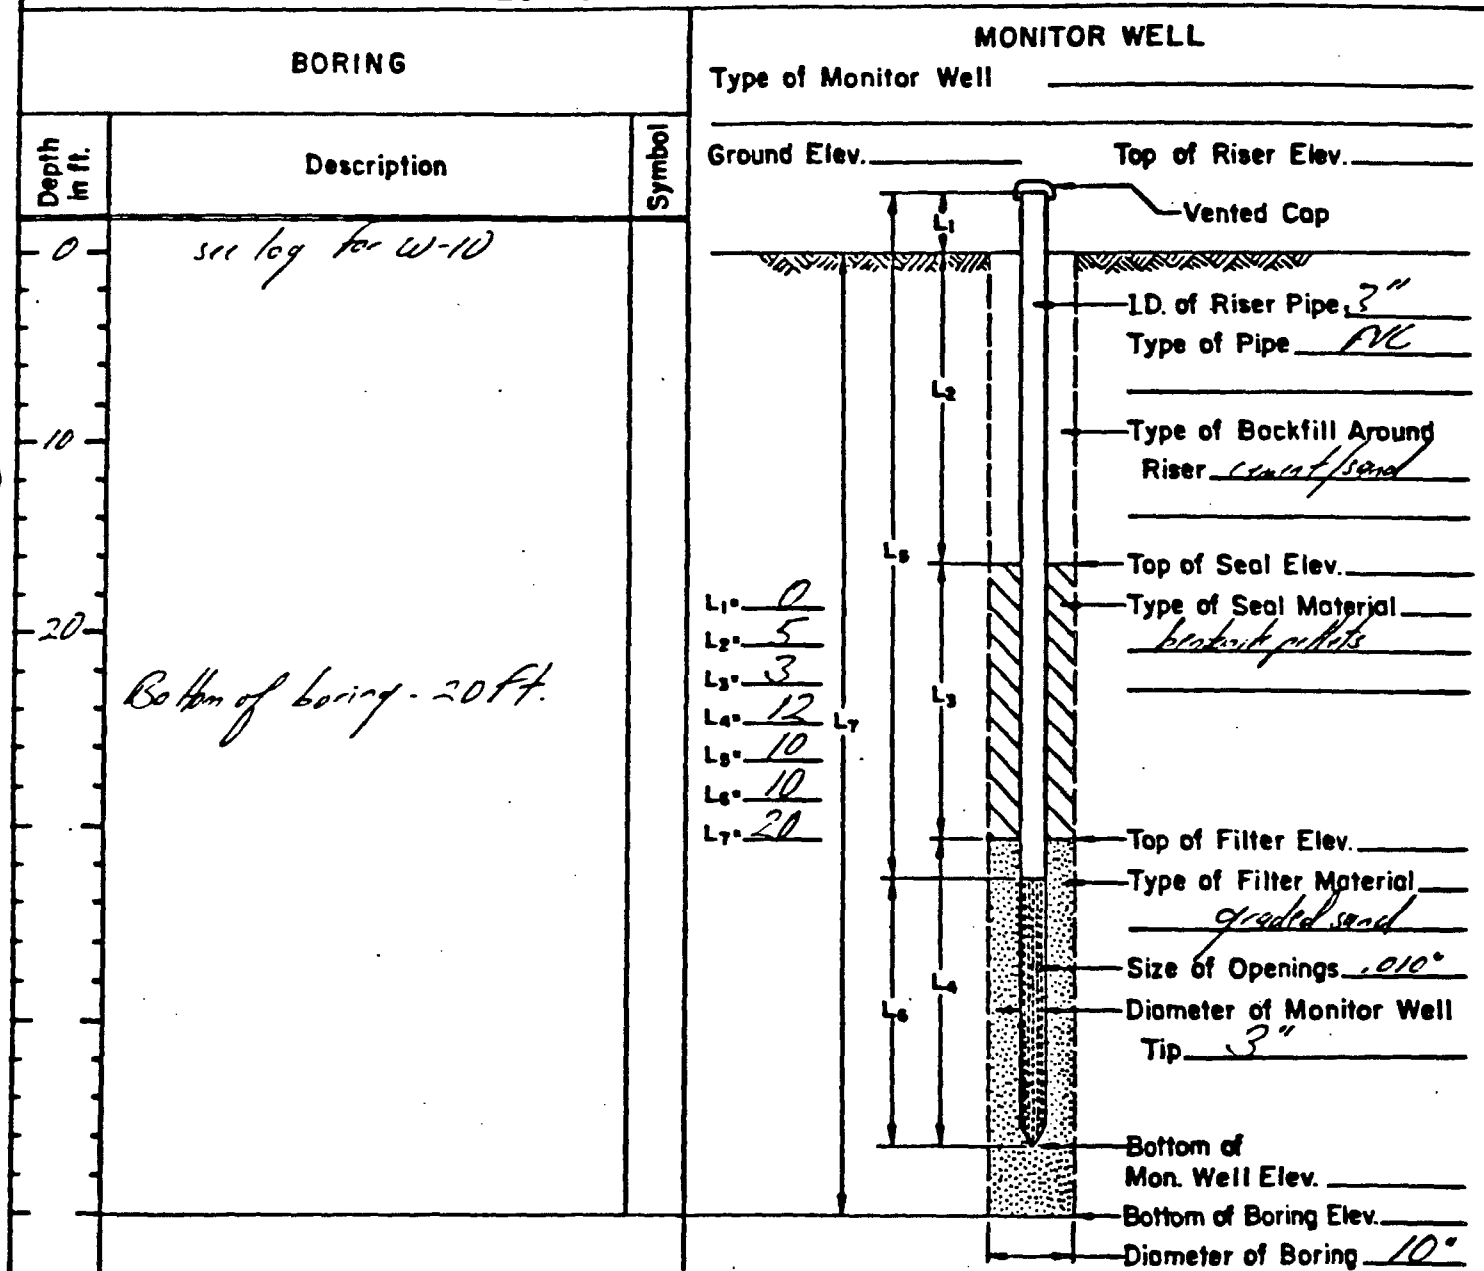 BORING
Depth in ft.
Description
Symbol
0
see log for W-10
10
20
Bottom of boring - 20 ft.
MONITOR WELL
Type of Monitor Well
Ground Elev.
Top of Riser Elev.
Vented Cap
L1
I.D. of Riser Pipe 3"
Type of Pipe PVC
L2
Type of Backfill Around
Riser cement/sand
L5
Top of Seal Elev.
Type of Seal Material
bentonite pellets
L1= 0
L2= 5
L3= 3
L4= 12
L5= 10
L6= 10
L7= 20
L7
L3
Top of Filter Elev.
Type of Filter Material
graded sand
Size of Openings .010"
L4
L6
Diameter of Monitor Well
Tip 3"
Bottom of
Mon. Well Elev.
Bottom of Boring Elev.
Diameter of Boring 10"